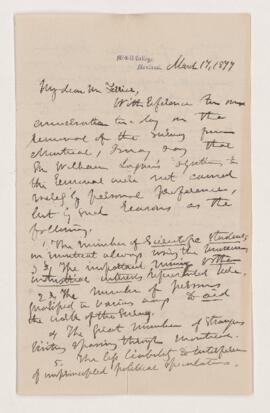 McGill College
Montreal
March 17, 1877
My dear Mr
With reference to our
conversation to day on the
removal of the Survey from
Montreal, I may say that
Sir William Logan's objections to
the removal were not caused
solely by personal preferences,
but by such reasons as the
following.
1 The number of Scientific Students
in Montreal always using the Museum
2 The important mining & other
industrial interests represented here.
3 The number of persons
qualified in various ways to aid
the work of the Survey.
4 The great number of Strangers
visiting & passing through Montreal.
5. The less liability to interference
of unprincipled political speculators.